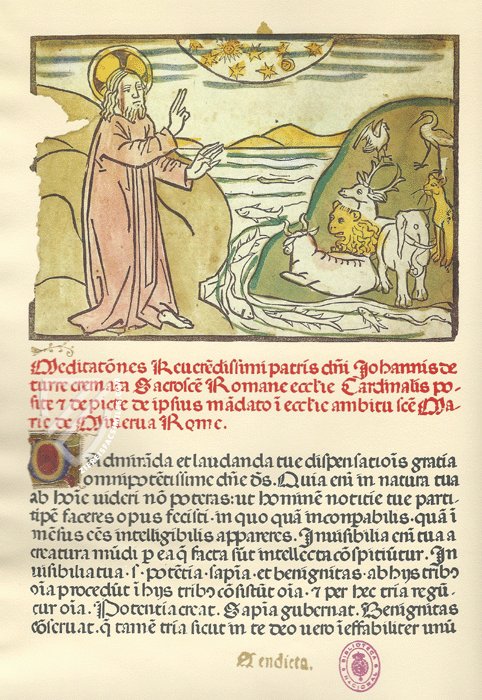 Meditatõnes Reuerẽdissimi patris dñi Johannis de
turre cremata Sacroscẽ Romane eccl'ie Cardinalis po-
site & de picte de ipsius mãdato ĩ eccl'ie ambitu scẽ Ma-
rie de Minerua Rome.
Admirãda et laudanda tue dispensatiõis gratia
omnipotẽtissime dñe dš. Quia em̃ in natura tua
ab hoĩe uideri nõ poteras: ut hominẽ notitie tue parti
tipẽ faceres opus fecisti. in quo quã incõpabilis. quã ĩ
mẽsus eẽs intelligibilis appareres. Inuisibilia em̃ tua a
creatura mũdi p ea q̃ facta sũt intellecta cõspitiũtur. In
uisibilia tua .s. potẽtia. sapĩa. et benignitas. ab hijs trib9
oĩa procedũt ĩ hijs trib9 cõsistũt oĩa. & per hec tria regũ-
tur oĩa. Potentia creat. Sapĩa gubernat. Benignitas
cõseruat. q̃ tamẽ tria sicut in te deo uero ĩeffabiliter unũ
Aendicta.
BIBLIOTECA
NACIONAL